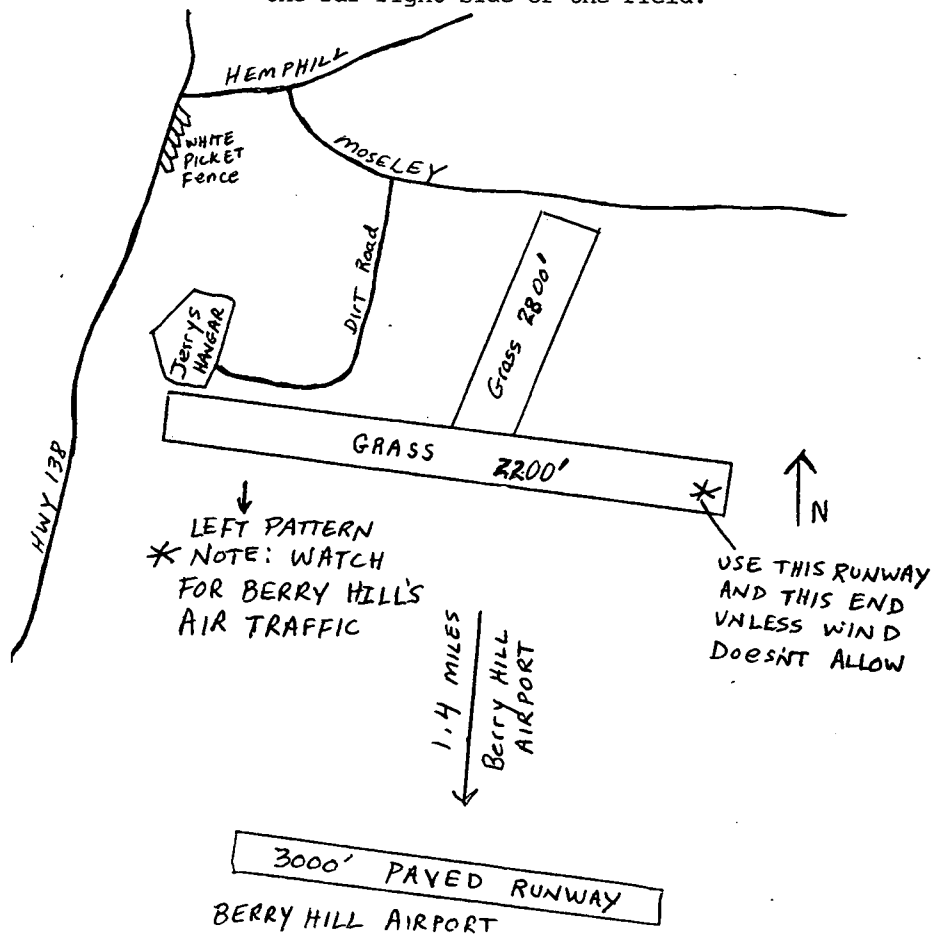 the far right side of the field.
HEMPHILL
WHITE
PICKET
Fence
MOSELEY
Dirt Road
Grass 2800'
Jerrys
HANGAR
GRASS 2200'
HWY 138
N
LEFT PATTERN
* NOTE: WATCH
FOR BERRY HILL'S
AIR TRAFFIC
*
USE THIS RUNWAY
AND THIS END
UNLESS WIND
DOESN'T ALLOW
1.4 MILES
Berry Hill
AIRPORT
3000' PAVED RUNWAY
BERRY HILL AIRPORT